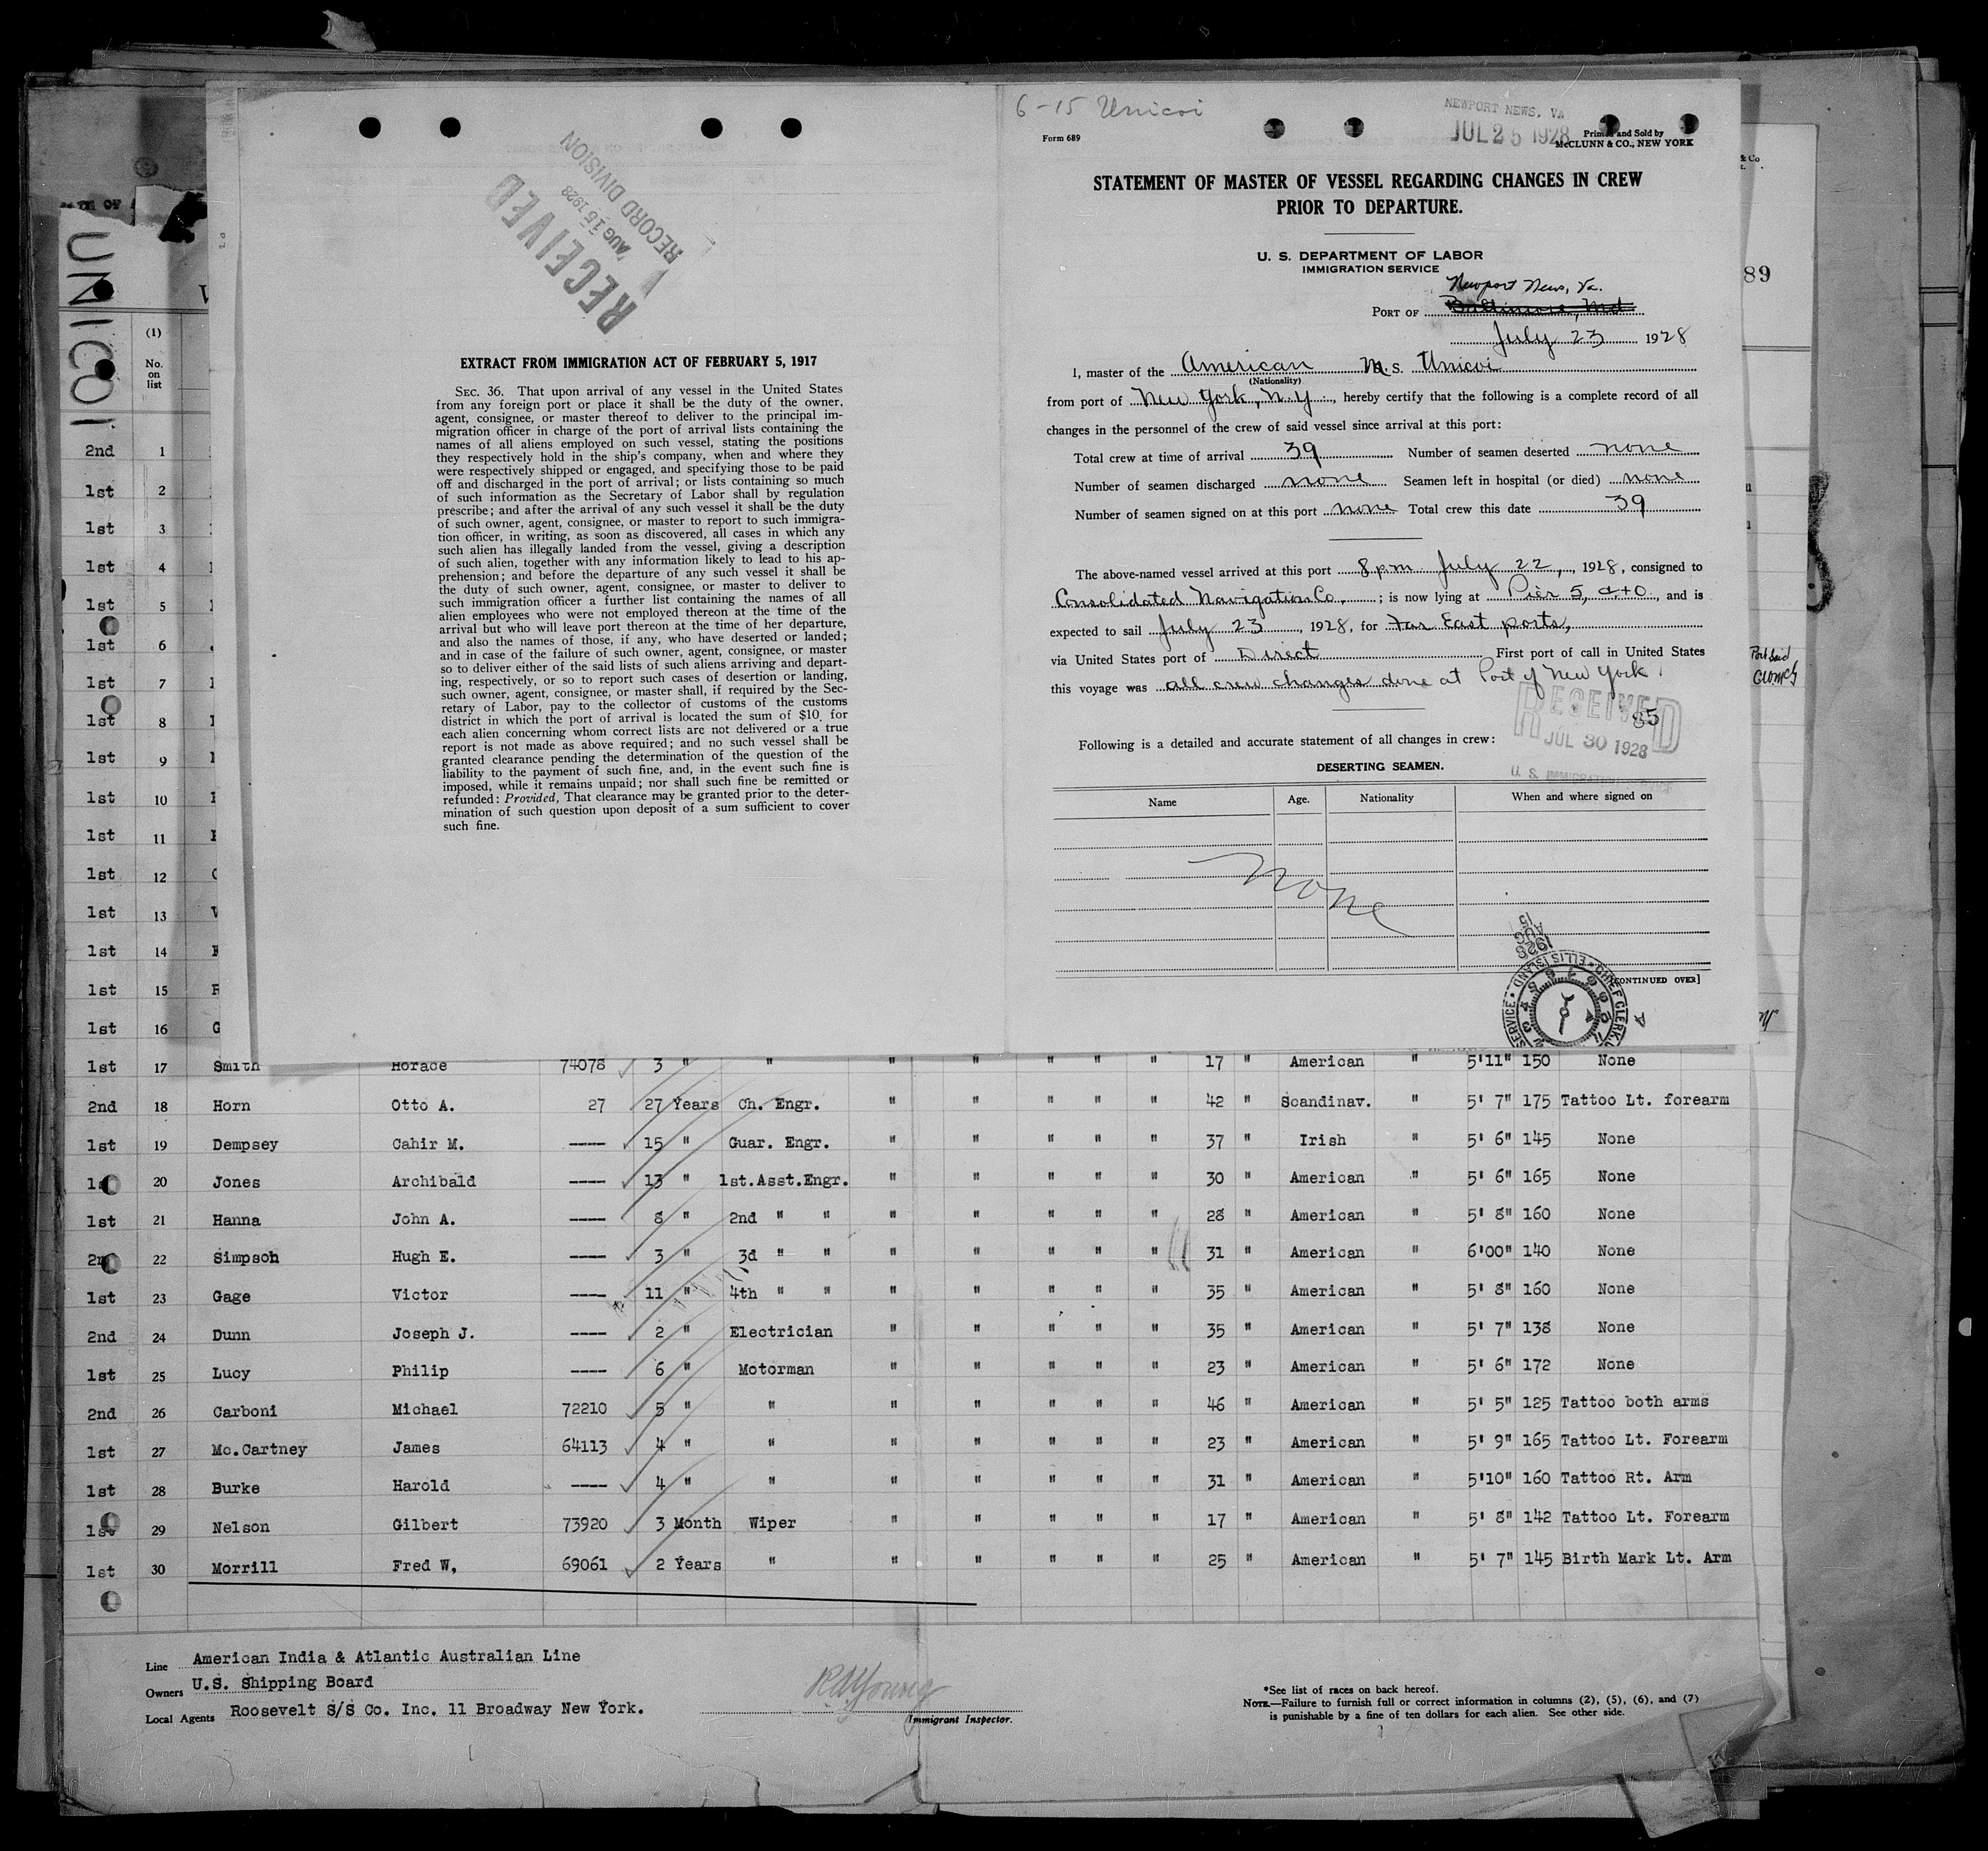 6-15 Unicoi
NEWPORT NEWS, VA
JUL 25 1928
Form 689
Printed and Sold by
McCLUNN & CO., NEW YORK
STATEMENT OF MASTER OF VESSEL REGARDING CHANGES IN CREW
PRIOR TO DEPARTURE.
U. S. DEPARTMENT OF LABOR
IMMIGRATION SERVICE
Newport News, Va.
PORT OF Baltimore, Md
July 23 1928
I, master of the American M. S. Unicoi
(Nationality)
from port of New York, N.Y., hereby certify that the following is a complete record of all
changes in the personnel of the crew of said vessel since arrival at this port:
Total crew at time of arrival 39 Number of seamen deserted none
Number of seamen discharged none Seamen left in hospital (or died) none
Number of seamen signed on at this port none Total crew this date 39
The above-named vessel arrived at this port 8 p.m. July 22, 1928, consigned to
Consolidated Navigation Co.; is now lying at Pier 5, C+O, and is
expected to sail July 23, 1928, for Far East ports,
via United States port of Direct First port of call in United States
this voyage was all crew changes done at Port of New York.
85
RECEIVED
JUL 30 1928
U. S. IMMIGRATION
Following is a detailed and accurate statement of all changes in crew:
DESERTING SEAMEN.
Name Age. Nationality When and where signed on
none
1928 AUG 15
[CONTINUED OVER]
ELLIS ISLAND CHIEF CLERK SERVICE
RECEIVED
AUG 15 1928
RECORD DIVISION
EXTRACT FROM IMMIGRATION ACT OF FEBRUARY 5, 1917
SEC. 36. That upon arrival of any vessel in the United States
from any foreign port or place it shall be the duty of the owner,
agent, consignee, or master thereof to deliver to the principal im-
migration officer in charge of the port of arrival lists containing the
names of all aliens employed on such vessel, stating the positions
they respectively hold in the ship's company, when and where they
were respectively shipped or engaged, and specifying those to be paid
off and discharged in the port of arrival; or lists containing so much
of such information as the Secretary of Labor shall by regulation
prescribe; and after the arrival of any such vessel it shall be the duty
of such owner, agent, consignee, or master to report to such immigra-
tion officer, in writing, as soon as discovered, all cases in which any
such alien has illegally landed from the vessel, giving a description
of such alien, together with any information likely to lead to his ap-
prehension; and before the departure of any such vessel it shall be
the duty of such owner, agent, consignee, or master to deliver to
such immigration officer a further list containing the names of all
alien employees who were not employed thereon at the time of the
arrival but who will leave port thereon at the time of her departure,
and also the names of those, if any, who have deserted or landed;
and in case of the failure of such owner, agent, consignee, or master
so to deliver either of the said lists of such aliens arriving and depart-
ing, respectively, or so to report such cases of desertion or landing,
such owner, agent, consignee, or master shall, if required by the Sec-
retary of Labor, pay to the collector of customs of the customs
district in which the port of arrival is located the sum of $10 for
each alien concerning whom correct lists are not delivered or a true
report is not made as above required; and no such vessel shall be
granted clearance pending the determination of the question of the
liability to the payment of such fine, and, in the event such fine is
imposed, while it remains unpaid; nor shall such fine be remitted or
refunded: Provided, That clearance may be granted prior to the deter-
mination of such question upon deposit of a sum sufficient to cover
such fine.
UNICOI
89
(1)
No.
on
list
2nd 1
1st 2
1st 3
1st 4
1st 5
1st 6
1st 7
1st 8
1st 9
1st 10
1st 11
1st 12
1st 13
1st 14
1st 15
1st 16
1st 17 Smith Horace 74078 3 " " " " " " " 17 " American " 5'11" 150 None
2nd 18 Horn Otto A. 27 27 Years Ch. Engr. " " " " " 42 " Scandinav. " 5' 7" 175 Tattoo Lt. forearm
1st 19 Dempsey Cahir M. ---- 15 " Guar. Engr. " " " " " 37 " Irish " 5' 6" 145 None
1st 20 Jones Archibald ---- 13 " 1st.Asst.Engr. " " " " " 30 " American " 5' 6" 165 None
1st 21 Hanna John A. ---- 8 " 2nd " " " " " " " 28 " American " 5' 8" 160 None
2nd 22 Simpson Hugh E. ---- 3 " 3d " " " " " " " 31 " American " 6'00" 140 None
1st 23 Gage Victor ---- 11 " 4th " " " " " " " 35 " American " 5' 8" 160 None
2nd 24 Dunn Joseph J. ---- 2 " Electrician " " " " " 35 " American " 5' 7" 138 None
1st 25 Lucy Philip ---- 6 " Motorman " " " " " 23 " American " 5' 6" 172 None
2nd 26 Carboni Michael 72210 5 " " " " " " " 46 " American " 5' 5" 125 Tattoo both arms
1st 27 Mc.Cartney James 64113 4 " " " " " " " 23 " American " 5' 9" 165 Tattoo Lt. Forearm
1st 28 Burke Harold ---- 4 " " " " " " " 31 " American " 5'10" 160 Tattoo Rt. Arm
1st 29 Nelson Gilbert 73920 3 Month Wiper " " " " " 17 " American " 5' 8" 142 Tattoo Lt. Forearm
1st 30 Morrill Fred W, 69061 2 Years " " " " " " 25 " American " 5' 7" 145 Birth Mark Lt. Arm
Line American India & Atlantic Australian Line
Owners U.S. Shipping Board
Local Agents Roosevelt S/S Co. Inc. 11 Broadway New York.
Immigrant Inspector.
*See list of races on back hereof.
NOTE.—Failure to furnish full or correct information in columns (2), (5), (6), and (7)
is punishable by a fine of ten dollars for each alien. See other side.